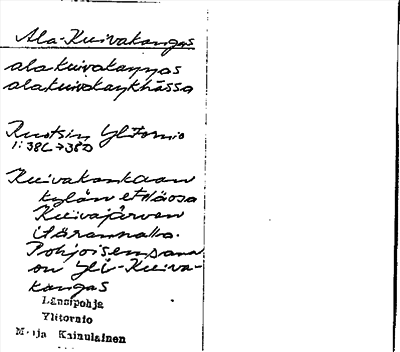 Ala-Kuivakangas
alakuivakaŋŋas
alakuivakaykhässä
Ruotsin Ylitornio
1:38C→38D
Kuivakankaan
kylän eteläosa
Kuivajärven
itärannalla.
Pohjoisempana
on Yli-Kuiva-
kangas
Länsipohja
Ylitornio
Maija Kainulainen